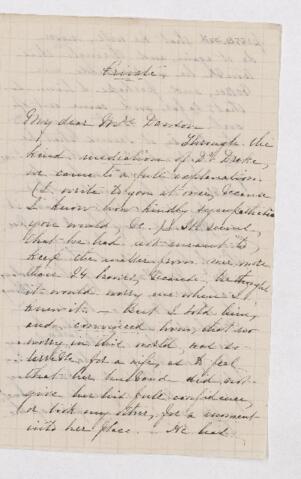 Private
My dear Mrs Dawson
Through the
kind mediation of Dr Drake,
we came to a full explanation.
(I write to you at once, because
I know how kindly sympathetic
you would, be.) It seems,
that he had not meant to
keep the matter from me more
than 24 hours, because he thought
it would worry me when I
knew it. — But I told him,
and convinced him, that no
worry in this world was so
terrible for a wife, as to feel
that her husband did not
give her his full confidence,
or took any other, for a moment
into her place. — He has